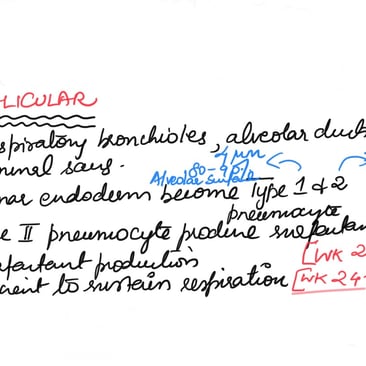 LICULAR
spiratory bronchioles, alveolar duct
minal sacs.
4 μm
80-90%
Alveolar surface
nar endoderm become Type 1 & 2
pneumocyte
e II pneumocyte produce surfactant
rfactant production [WK 2
cient to sustain respiration [WK 24-